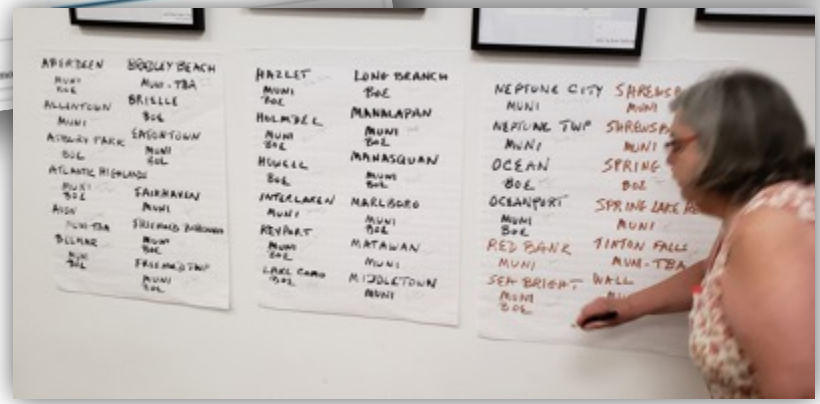 ABERDEEN
MUNI
BOE
ALLENTOWN
MUNI
ASBURY PARK
BOE
ATLANTIC HIGHLANDS
MUNI
BOE
AVON
MUNI-TBA
BELMAR
MUNI
BOE
BRADLEY BEACH
MUNI-TBA
BRIELLE
BOE
EATONTOWN
MUNI
BOE
FAIRHAVEN
MUNI
FREEHOLD
MUNI
BOE
FREEHOLD TWP
MUNI
BOE
HAZLET
MUNI
BOE
HOLMDEL
MUNI
BOE
HOWELL
BOE
INTERLAKEN
MUNI
KEYPORT
MUNI
BOE
LAKE COMO
BOE
LONG BRANCH
BOE
MANALAPAN
MUNI
BOE
MANASQUAN
MUNI
BOE
MARLBORO
MUNI
BOE
MATAWAN
MUNI
MIDDLETOWN
MUNI
NEPTUNE CITY
MUNI
NEPTUNE TWP
MUNI
OCEAN
BOE
OCEANPORT
MUNI
BOE
RED BANK
MUNI
SEA BRIGHT
MUNI
BOE
MUNI
MUNI
SPRING
BOE
SPRING LAKE
MUNI
TINTON FALLS
MUNI-TBA
WALL